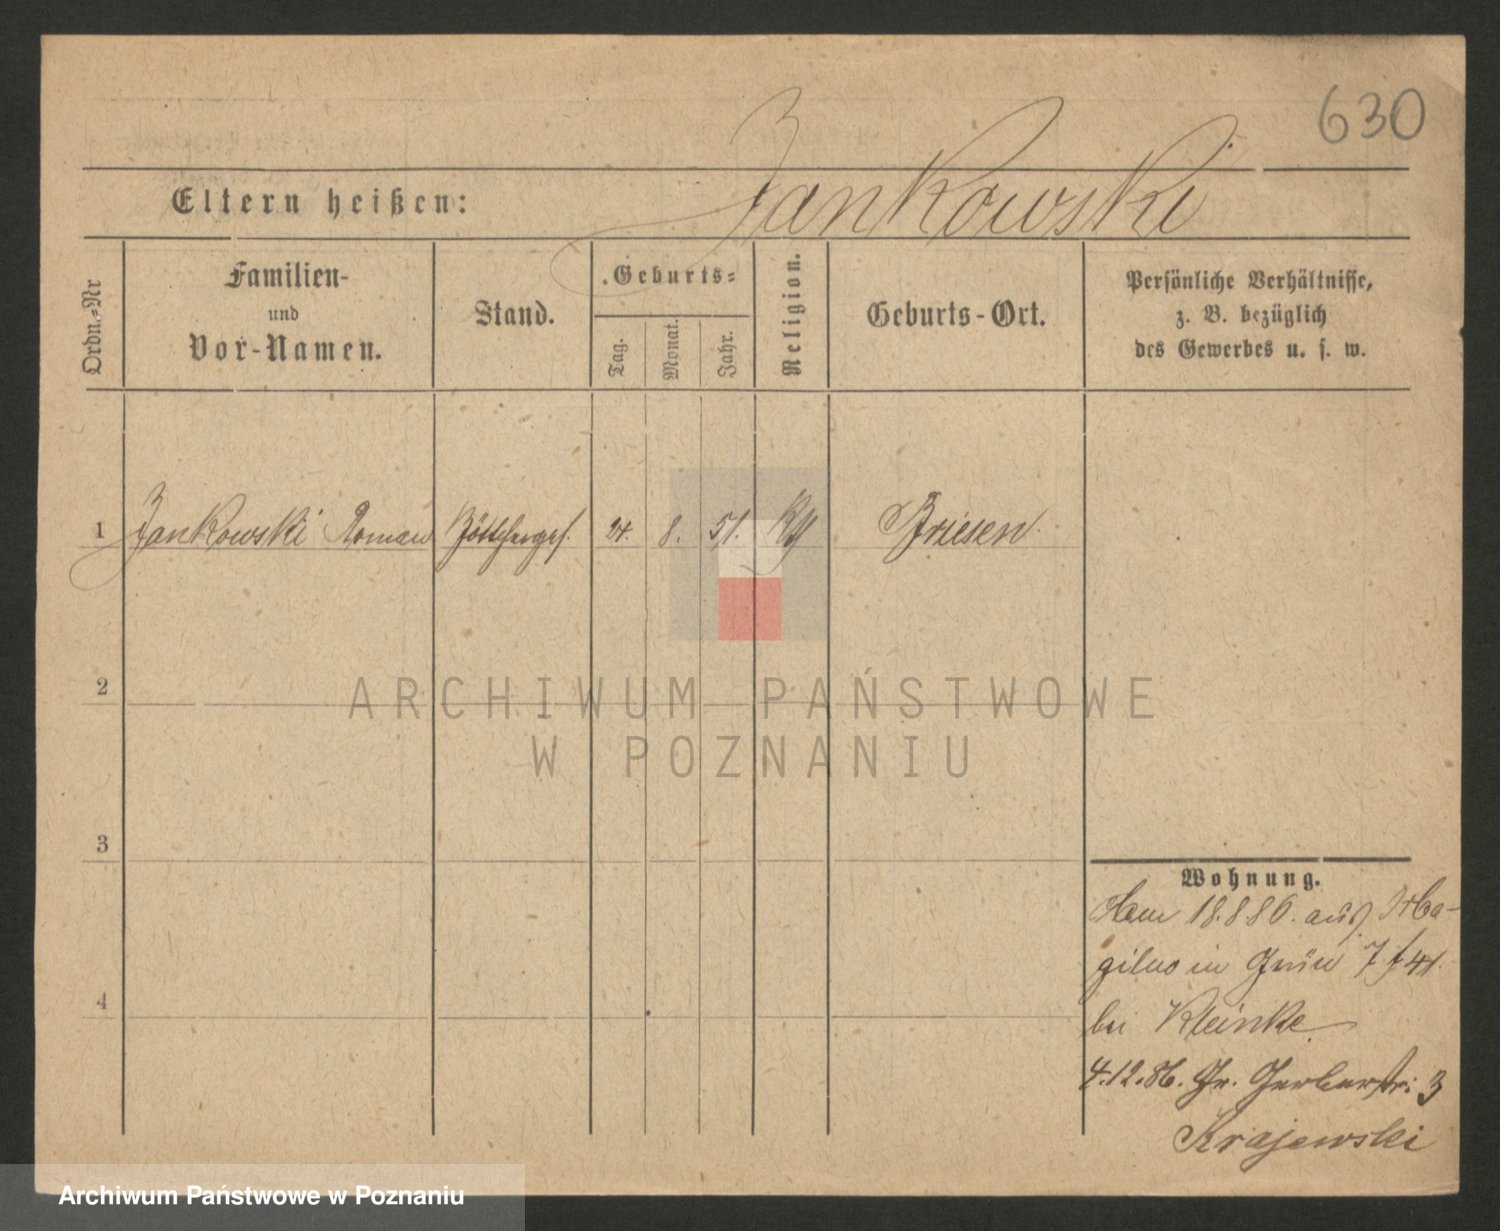 630
Jankowski
Eltern heißen:
Ordn.-Nr
Familien-
und
Vor-Namen.
Stand.
Geburts=
Tag.
Monat.
Jahr.
Religion.
Geburts-Ort.
Persönliche Verhältnisse,
z. B. bezüglich
des Gewerbes u. s. w.
1 Jankowski Roman Böttcherges. 24. 8. 51. Briesen
2
ARCHIWUM PAŃSTWOWE
W POZNANIU
3
Wohnung.
18.8.86. aus
in 41.
bei Kleinke
4
4.12.86. Gr. Gerberstr: 3
Krajewski
Archiwum Państwowe w Poznaniu